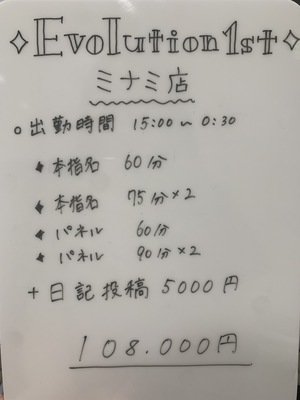 ✧Evolution1st✧
ミナミ店
○出勤時間 15:00〜0:30
◆本指名 60分
◆本指名 75分×2
◆パネル 60分
◆パネル 90分×2
+日記投稿 5000円
108.000円